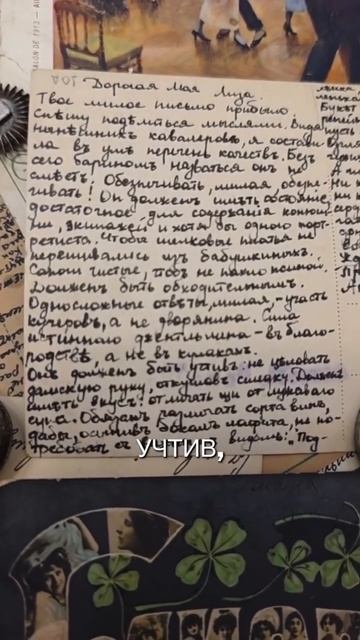 SALON DE 1913
Дорогая Моя Лиза.
Твое милое письмо прибыло.
Спѣшу подѣлиться мыслями. Видя
нынѣшнихъ кавалеровъ, я состави-
ла въ умѣ перечень качествъ. Безъ
сего барином назваться онъ не
смѣетъ! Обезпечивать, милая, обезпе-
чивать! Он долженъ имѣть состояние,
достаточное для содержания конюш-
ни, экипажей и хотя бы одного порт-
ретиста. Чтобы шелковые платья не
перешивались изъ бабушкиныхъ.
Сапоги чистые, чтобъ не пахло псиной.
Долженъ быть обходительнымъ.
Односложные отвѣты, милая, - участь
кучеровъ, а не дворянина. Сила
истиннаго джентльмена - въ благо-
родствѣ, а не въ кулакахъ.
Онъ долженъ быть учтивъ: не цѣловать
дамскую руку, откусивъ селедку. Долженъ
имѣть вкусъ: отличать щи от лукаваго
супа. Обязанъ различать сорта винъ,
дабы, осушивъ бокалъ лафита, не по-
требовать съ видомъ: "Под-
УЧТИВ,